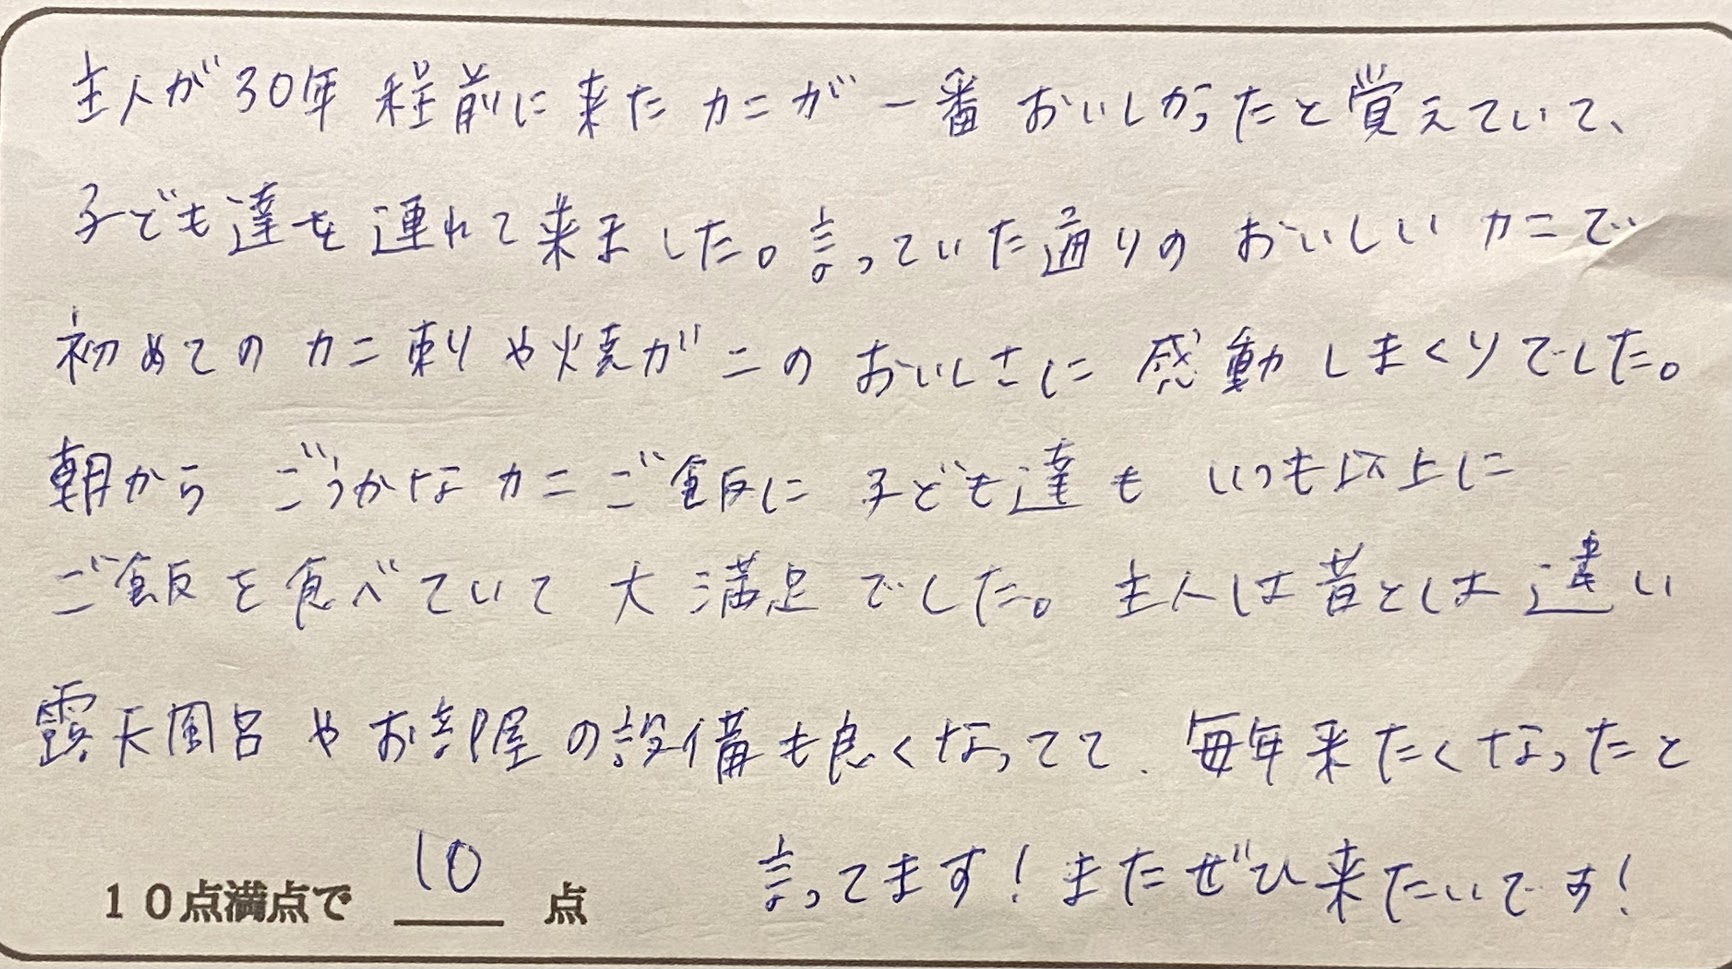 主人が30年程前に来たカニが一番おいしかったと覚えていて、
子ども達を連れて来ました。言っていた通りのおいしいカニで
初めてのカニ刺や焼がニのおいしさに感動しまくりでした。
朝から ごうかなカニご飯に子ども達も いつも以上に
ご飯を食べていて大満足でした。主人は昔とは違い
露天風呂やお部屋の設備も良くなってて、毎年来たくなったと
言ってます!またぜひ来たいです!
10点満点で 10 点